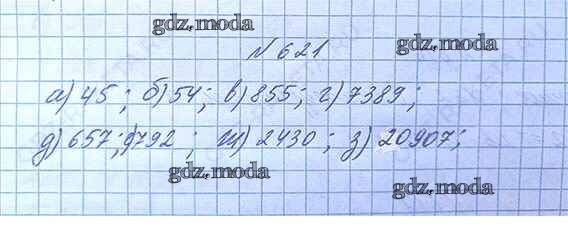 gdz.moda
№ 621
gdz.moda
а) 45 ; б) 54 ; в) 855 ; г) 7389 ;
д) 657 ; е) 792 ; ж) 2430 ; з) 20907 ;
gdz.moda
gdz.moda